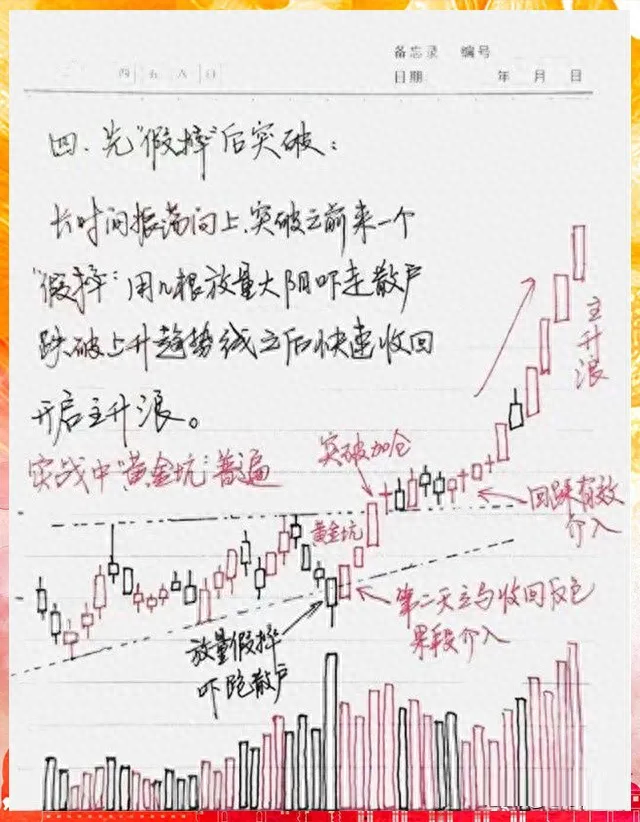 备忘录 编号
四 五 六 日
日期 年 月 日
四、先"假摔"后突破:
长时间振荡向上,突破之前来一个
"假摔":用几根放量大阴吓走散户
跌破上升趋势线之后快速收回
开启主升浪。
实战中"黄金坑"普遍
主升浪
突破加仓
回踩有效
介入
黄金坑
第二天立马收回反包
果断介入
放量假摔
吓跑散户